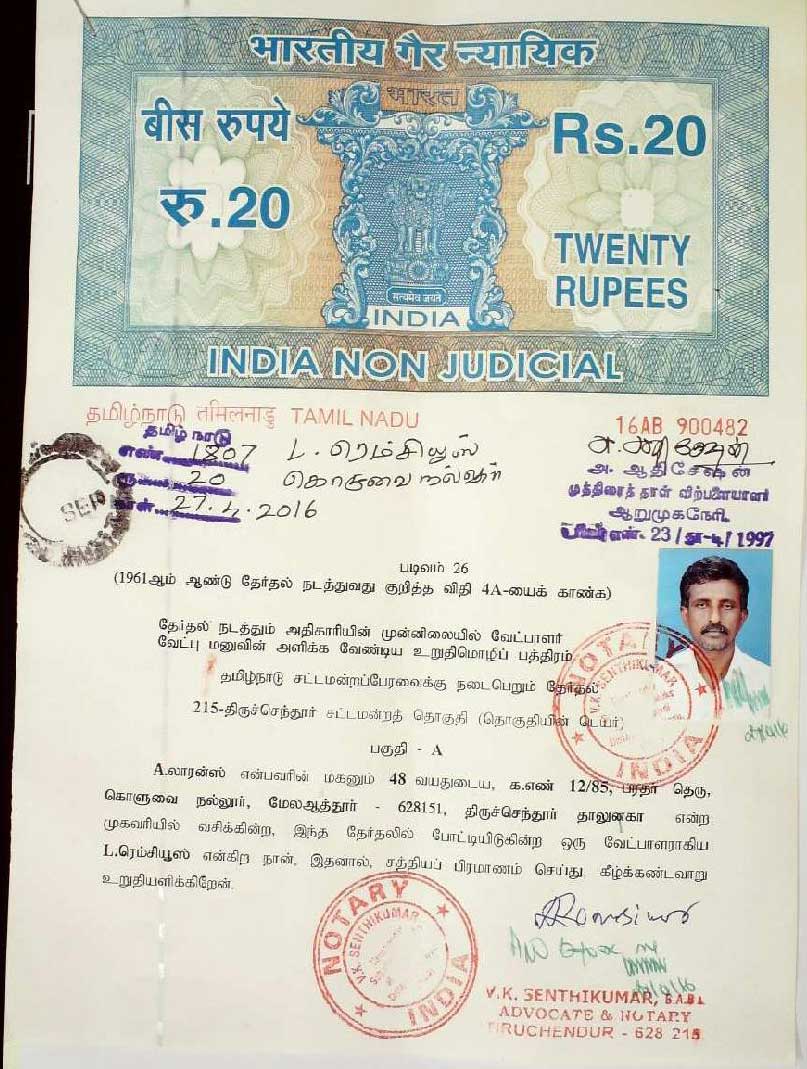 भारतीय गैर न्यायिक
भारत
बीस रुपये
Rs.20
रु.20
TWENTY
RUPEES
सत्यमेव जयते
INDIA
INDIA NON JUDICIAL
தமிழ்நாடு तमिलनाडु TAMIL NADU
16AB 900482
தமிழ் நாடு
எண். 1807 L. ரெம்சியூஸ்
ரூ. 20 கொசுவை நல்லூர்
நாள். 27.4.2016
SEP
அ. ஆதிசேஷன்
முத்திரைத் தாள் விற்பனையாளர்
ஆறுமுகநேரி.
23/ 1997
படிவம் 26
(1961ஆம் ஆண்டு தேர்தல் நடத்துவது குறித்த விதி 4A-யைக் காண்க)
தேர்தல் நடத்தும் அதிகாரியின் முன்னிலையில் வேட்பாளர்
வேட்பு மனுவின் அளிக்க வேண்டிய உறுதிமொழிப் பத்திரம்
தமிழ்நாடு சட்டமன்றப்பேரவைக்கு நடைபெறும் தேர்தல்
215-திருச்செந்தூர் சட்டமன்றத் தொகுதி (தொகுதியின் பெயர்)
பகுதி - A
A.லாரன்ஸ் என்பவரின் மகனும் 48 வயதுடைய, க.எண் 12/85, பரதர் தெரு,
கொளுவை நல்லூர், மேலஆத்தூர் - 628151, திருச்செந்தூர் தாலுகா என்ற
முகவரியில் வசிக்கின்ற, இந்த தேர்தலில் போட்டியிடுகின்ற ஒரு வேட்பாளராகிய
L.ரெம்சியூஸ் என்கிற நான், இதனால், சத்தியப் பிரமாணம் செய்து கீழ்க்கண்டவாறு
உறுதியளிக்கிறேன்.
NOTARY
V.K. SENTHIKUMAR
INDIA
NOTARY
V.K. SENTHIKUMAR
INDIA
V.K. SENTHIKUMAR, B.A.B.L
ADVOCATE & NOTARY
TIRUCHENDUR - 628 215